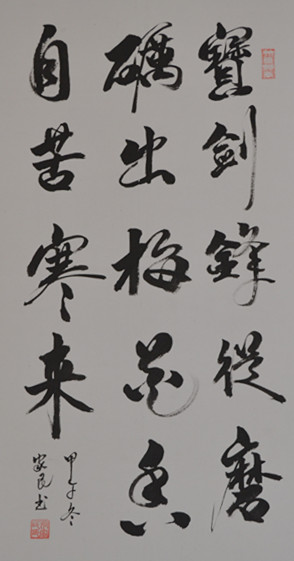 寶劍鋒從磨
礪出梅花香
自苦寒来
甲午冬
家民书